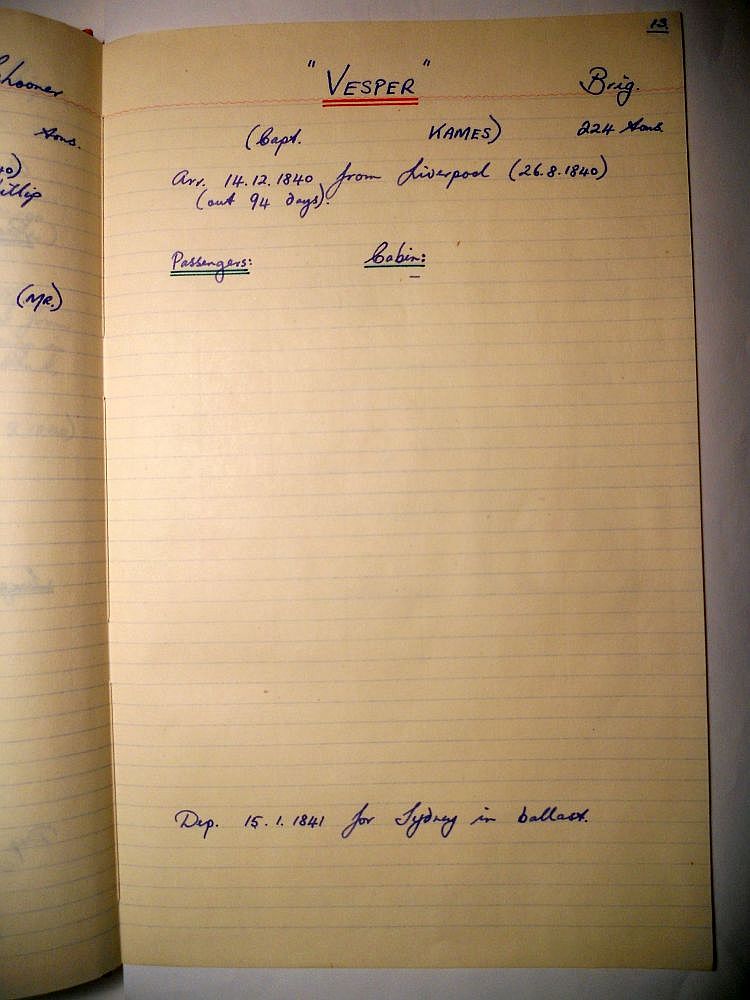 chooner
tons.
40)
illip
(MR.)
13.
"VESPER" Brig.
(Capt. KAMES) 224 tons
Arr. 14.12.1840 from Liverpool (26.8.1840)
(out 94 days).
Passengers: Cabin:
–
Dep. 15.1.1841 for Sydney in ballast.